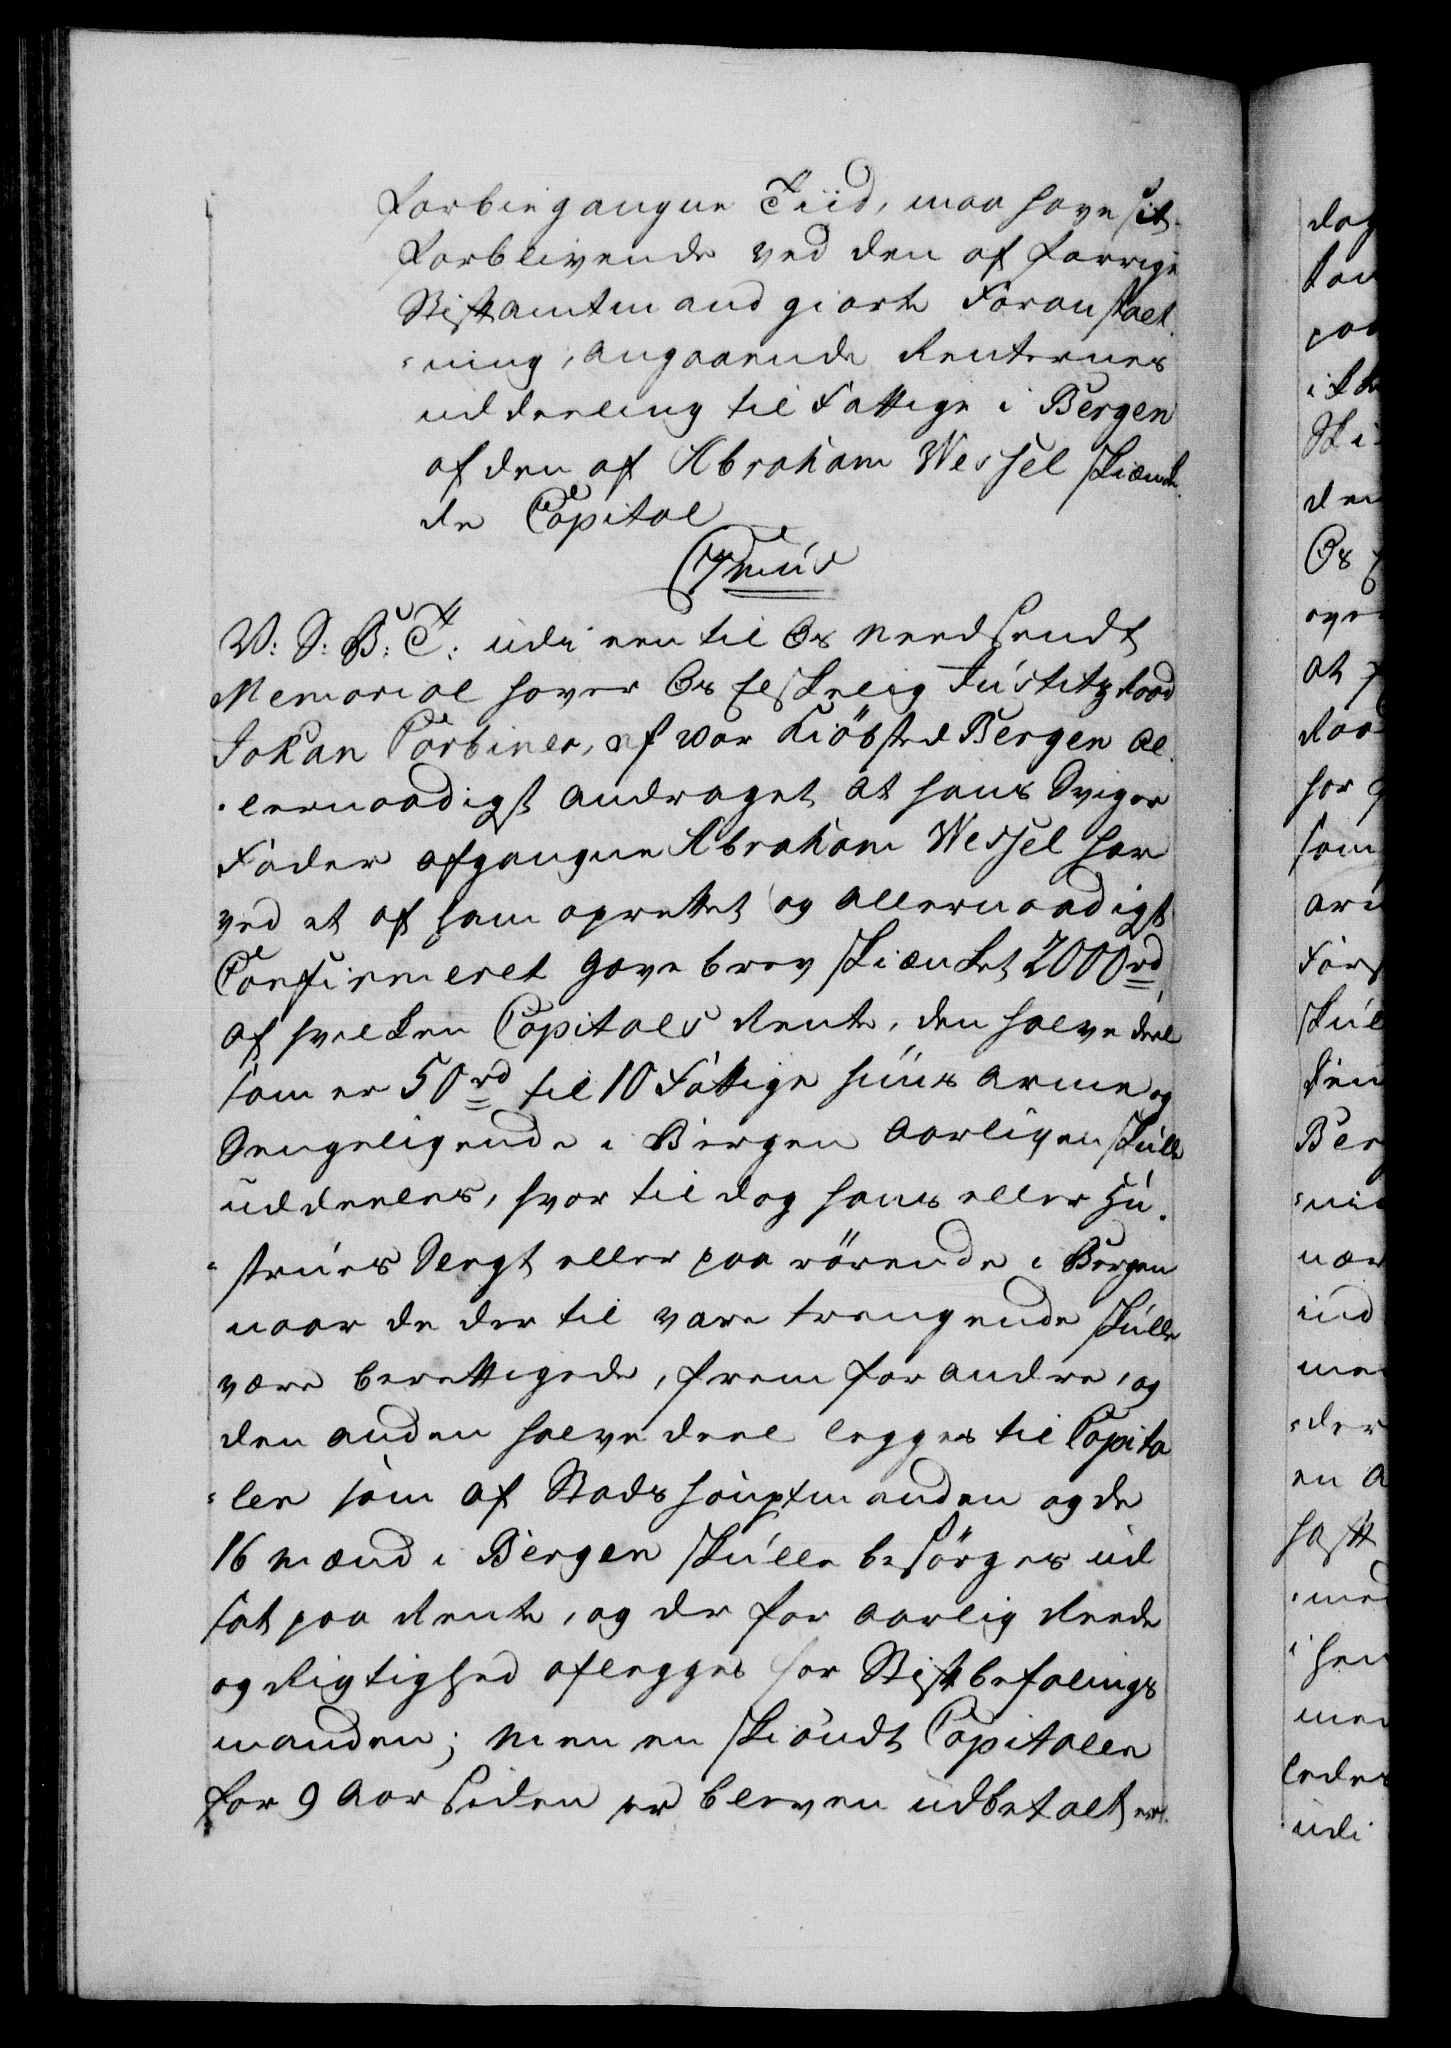 forbiegangne Tiid, maa have sit
Forblivende ved den af forrige
Stiftamtmand giorte Foranstalt
-ning, angaaende Renternes
uddeeling til Fattige i Bergen
af den af Abraham Wessel skiænk
de Capital
V: G: B: T: udi een til Os neersendt
Memorial haver Os Elskelig Justitz Raad
Johan Garbiner, af vor Kiöbsted Bergen al
-lernaadigst andraget at hans Sviger
Fader afgangne Abraham Wessel har
ved et af ham oprettet og allernaadigst
Confirmeret Gavebrev skiænket 2000 rd,
af hvilken Capitals Rente, den halve deel
som er 50 rd til 10 Fattige huus arme og
Sengeligende i Bergen aarligen skulle
uddeeles, hvor til dog hans eller Hu
-struis Slegt eller paarörende i Bergen
naar de der til vare trængende skulle
være berettigede, frem for andre, og
den anden halve deel legges til Capita
-len som af Stadshauptmanden og de
16 mænd i Bergen skulle besörges ud
sat paa Rente, og der for aarlig Reede
og Rigtighed aflegges for Stiftbefalings
manden; men en skiöndt Capitalen
for 9 Aar siden er bleven udbetalt